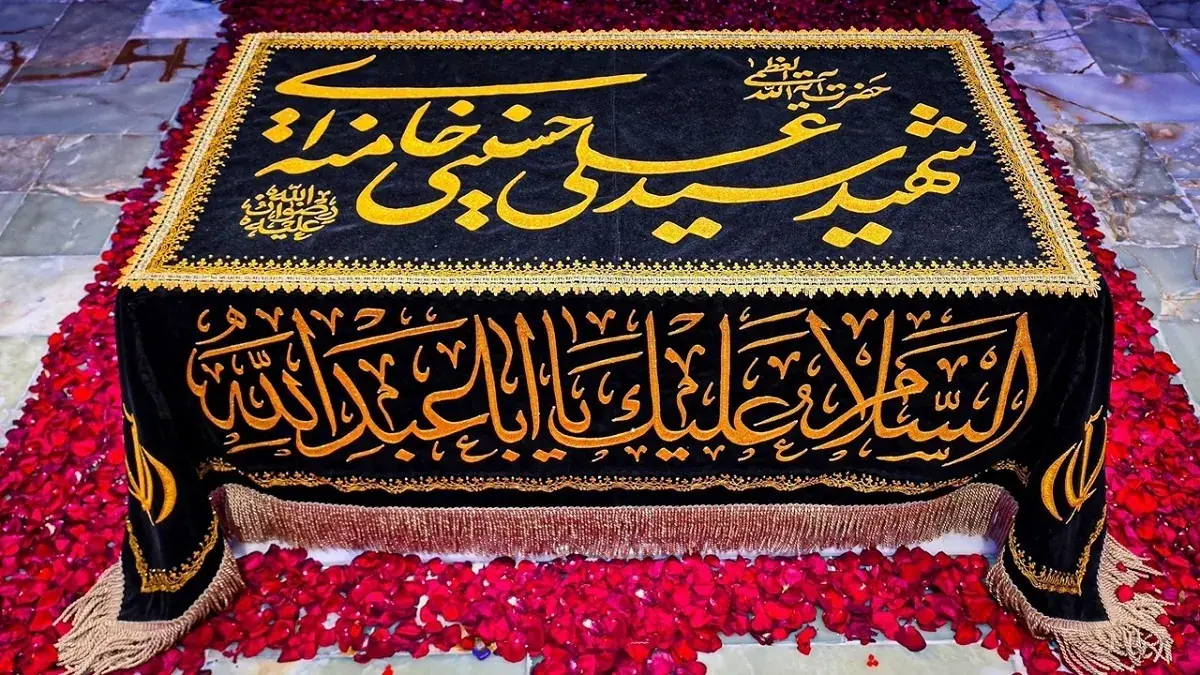 حضرت آیة الله العظمی
شهید سید علی حسینی خامنه‌ای
رضوان الله علیه
السلام علیك یا ابا عبد الله